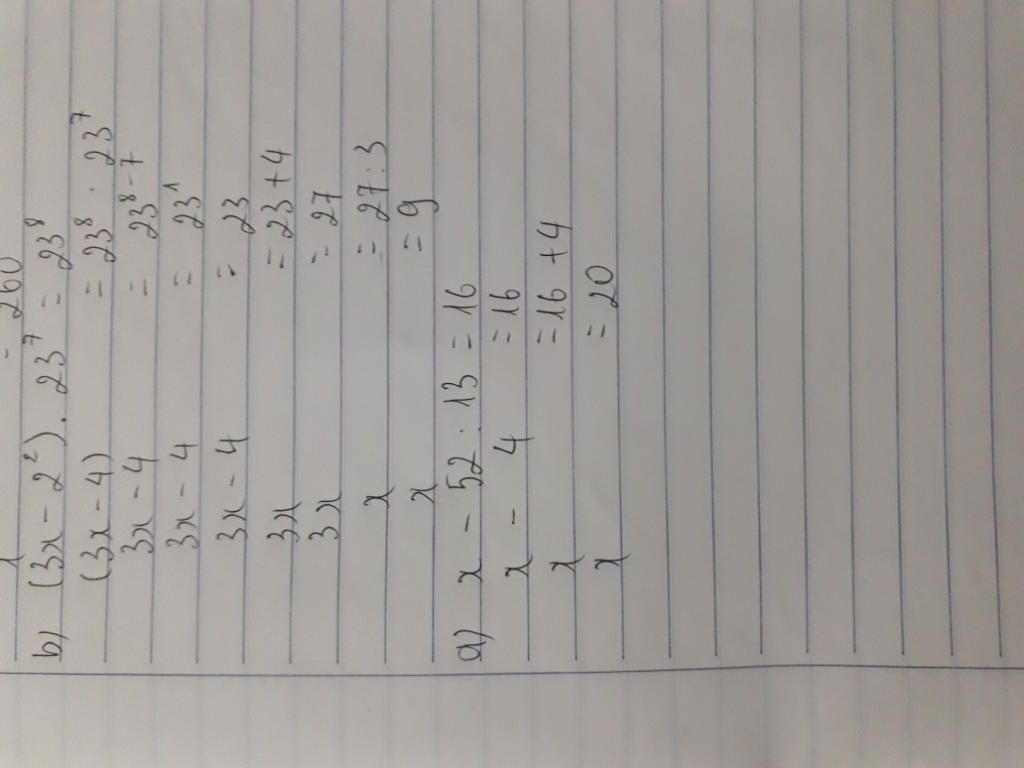 x = 260
b) (3x - 2²) . 23⁷ = 23⁸
(3x - 4) = 23⁸ : 23⁷
3x - 4 = 23⁸⁻⁷
3x - 4 = 23¹
3x - 4 = 23
3x = 23 + 4
3x = 27
x = 27 : 3
x = 9
a) x - 52 : 13 = 16
x - 4 = 16
x = 16 + 4
x = 20